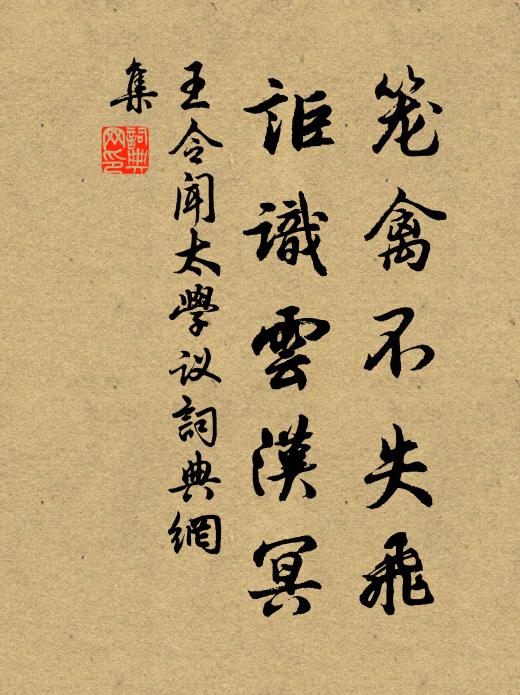 笼禽不失飛
詎識雲漢冥
王令闻太學议詞典網
集
詞典
网印